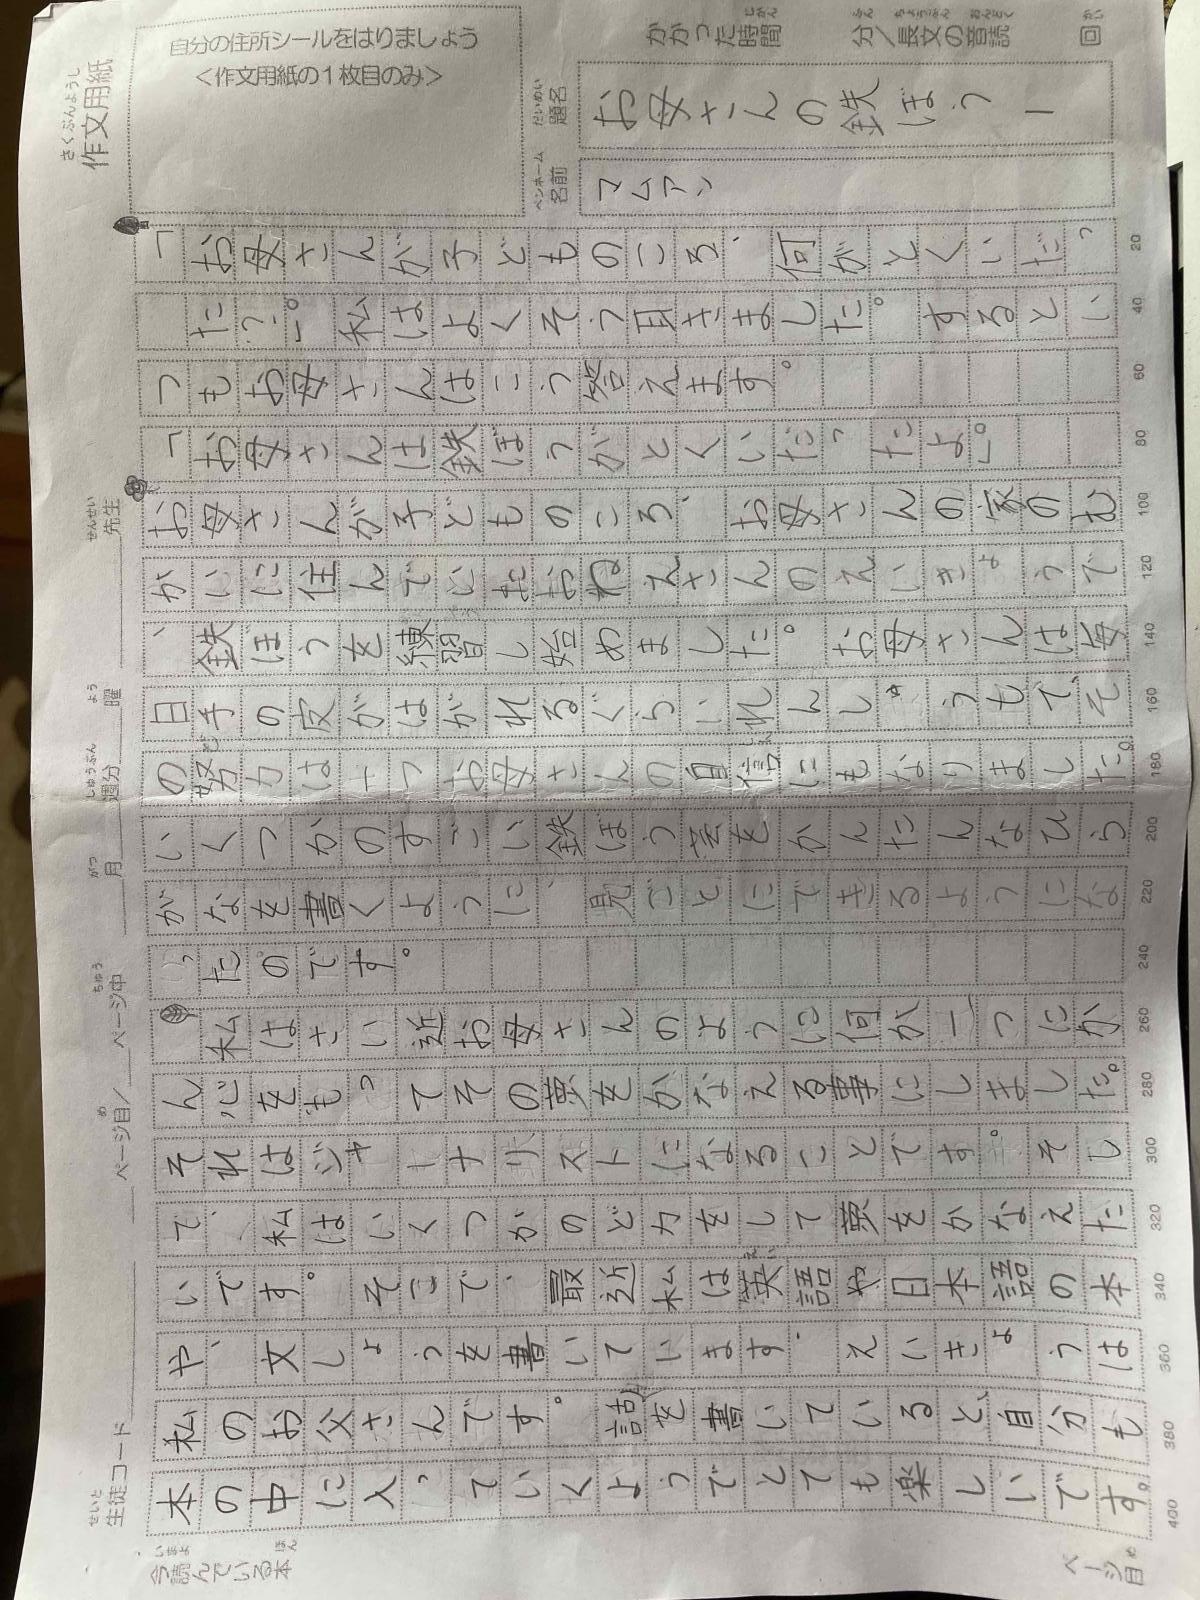 作文用紙
さくぶんようし
自分の住所シールをはりましょう
<作文用紙の1枚目のみ>
かかった時間
じかん
分/長文の音読
ふん ちょうぶん おんどく
回
かい
題名
だいめい
お母さんの鉄ぼう 1
ペンネーム
名前
マムアン
「お母さんが子どものころ、何がとくいだっ
た?」。私はよくそう耳きました。するとい
つもお母さんはこう答えます。
「お母さんは鉄ぼうがとくいだったよ」。
お母さんが子どものころ、お母さんの家のむ
かいに住んでいたおねえさんのえいきょうで
、鉄ぼうを練習し始めました。お母さんは毎
日手の皮がはがれるぐらいれんしゅうもで、そ
の努力は一つお母さんの自信にもなりました。
いくつかのすごい鉄ぼう芸をかんたんなひら
がなを書くように、見ごとにできるようにな
ったのです。
私はさい近お母さんのように何か一つにか
ん心をもってその夢をかなえる事にしました。
それはジャーナリストになることです。そし
て、私はいくつかのど力をして夢をかなえた
いです。そこで、最近私は英語や日本語の本
や、文しょうを書いています。えいきょうは
私のお父さんです。話を書いていると、自分も
本の中に入っていくようでとても楽しいです。
20
40
60
80
100
120
140
160
180
200
220
240
260
280
300
320
340
360
380
400
生徒コード
せいと
ページ目/
め
ページ中
ちゅう
月
がつ
週分
しゅうぶん
曜
よう
先生
せんせい
今読んでいる本
いまよ ほん
ページ目
め